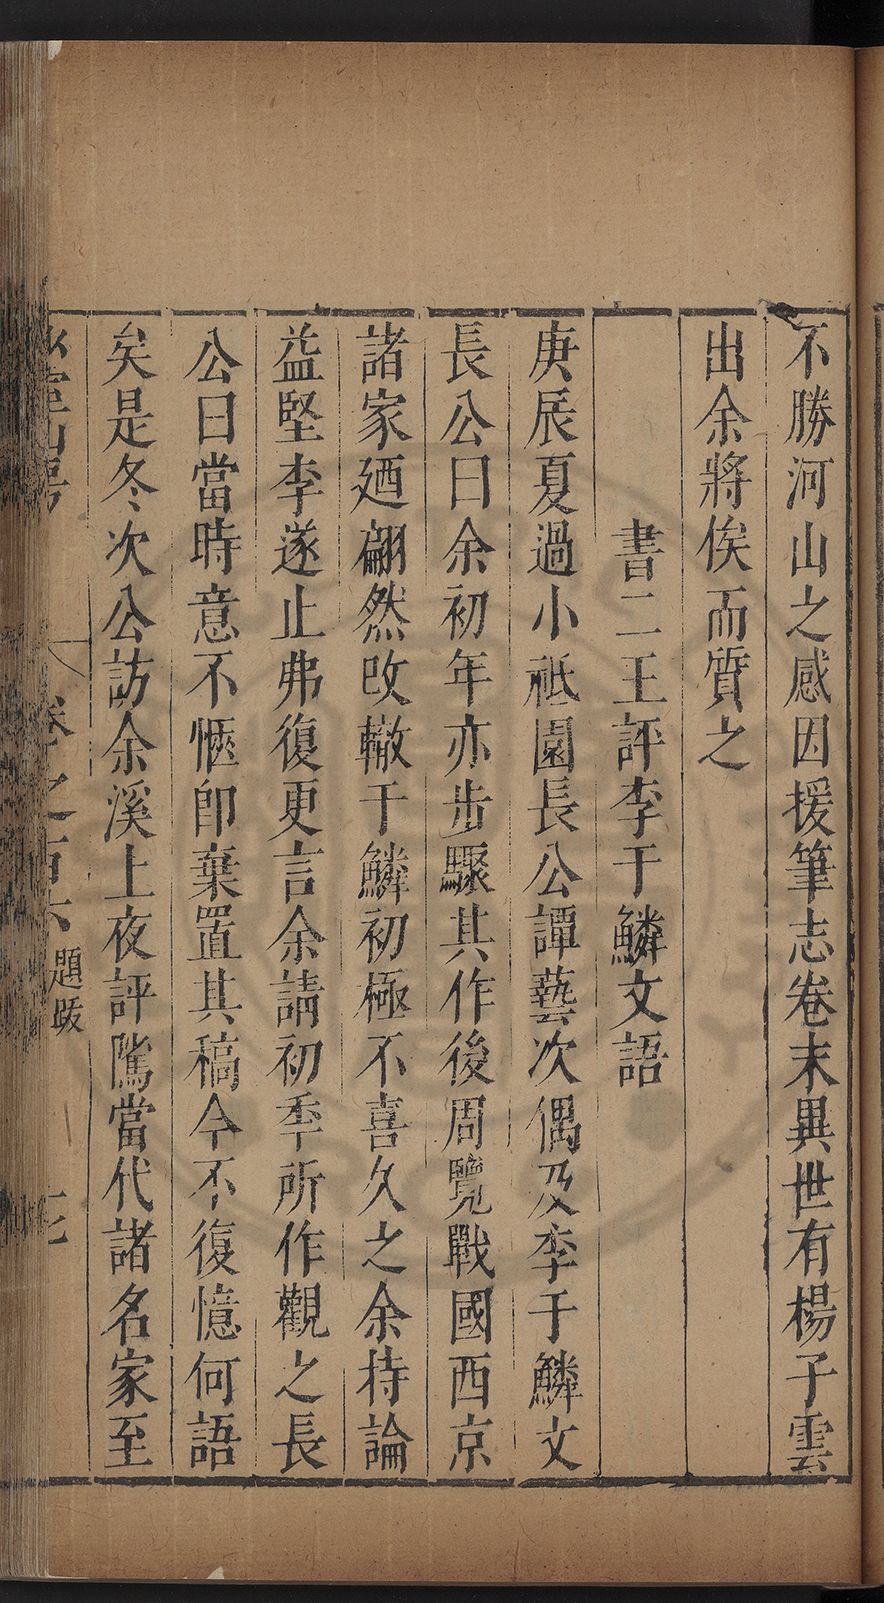 不勝河山之感因援筆志卷末異世有楊子雲
出余將俟而質之
書二王評李于鱗文語
庚辰夏過小祗園長公譚藝次偶及李于鱗文
長公曰余初年亦步驟其作後周覽戰國西京
諸家廼翩然改轍于鱗初極不喜久之余持論
益堅李遂止弗復更言余請初季所作觀之長
公曰當時意不愜卽棄置其稿今不復憶何語
矣是冬次公訪余溪上夜評隲當代諸名家至
卷之百六 題跋